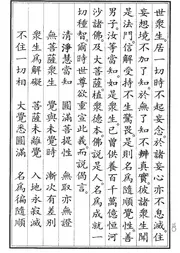 世衆生居一切時不起妄念於諸妄心亦不息滅住
妄想境不加了知於無了知不辨真實彼諸衆生聞
是法門信解受持不生驚畏是則名為隨順覺性善
男子汝等當知如是衆生已曾供養百千萬億恒河
沙諸佛及大菩薩植衆德本佛說是人名為成就一
切種智爾時世尊欲重宣此義而說偈言
清淨慧當知 圓滿菩提性 無取亦無證
無菩薩衆生 覺與未覺時 漸次有差別
衆生為解礙 菩薩未離覺 入地永寂滅
不住一切相 大覺悉圓滿 名為徧隨順